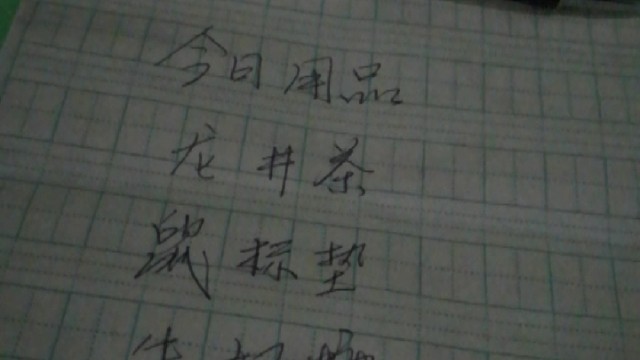 今日用品
龙井茶
鼠标垫